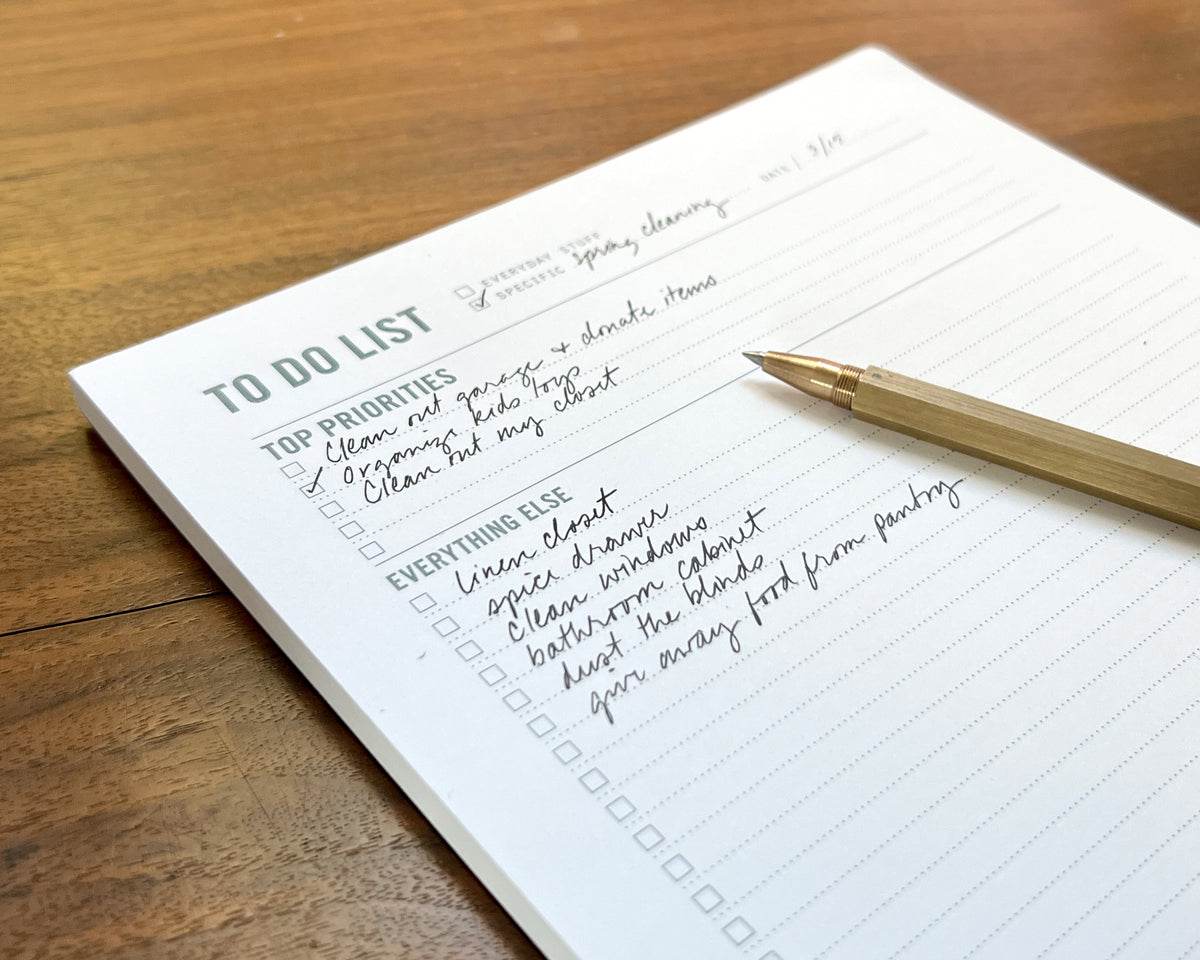 TO DO LIST
EVERYDAY STUFF
SPECIFIC spring cleaning
DATE | 3/19
TOP PRIORITIES
Clean out garage + donate items
Organize kids toys
Clean out my closet
EVERYTHING ELSE
linen closet
spice drawer
clean windows
bathroom cabinet
dust the blinds
give away food from pantry